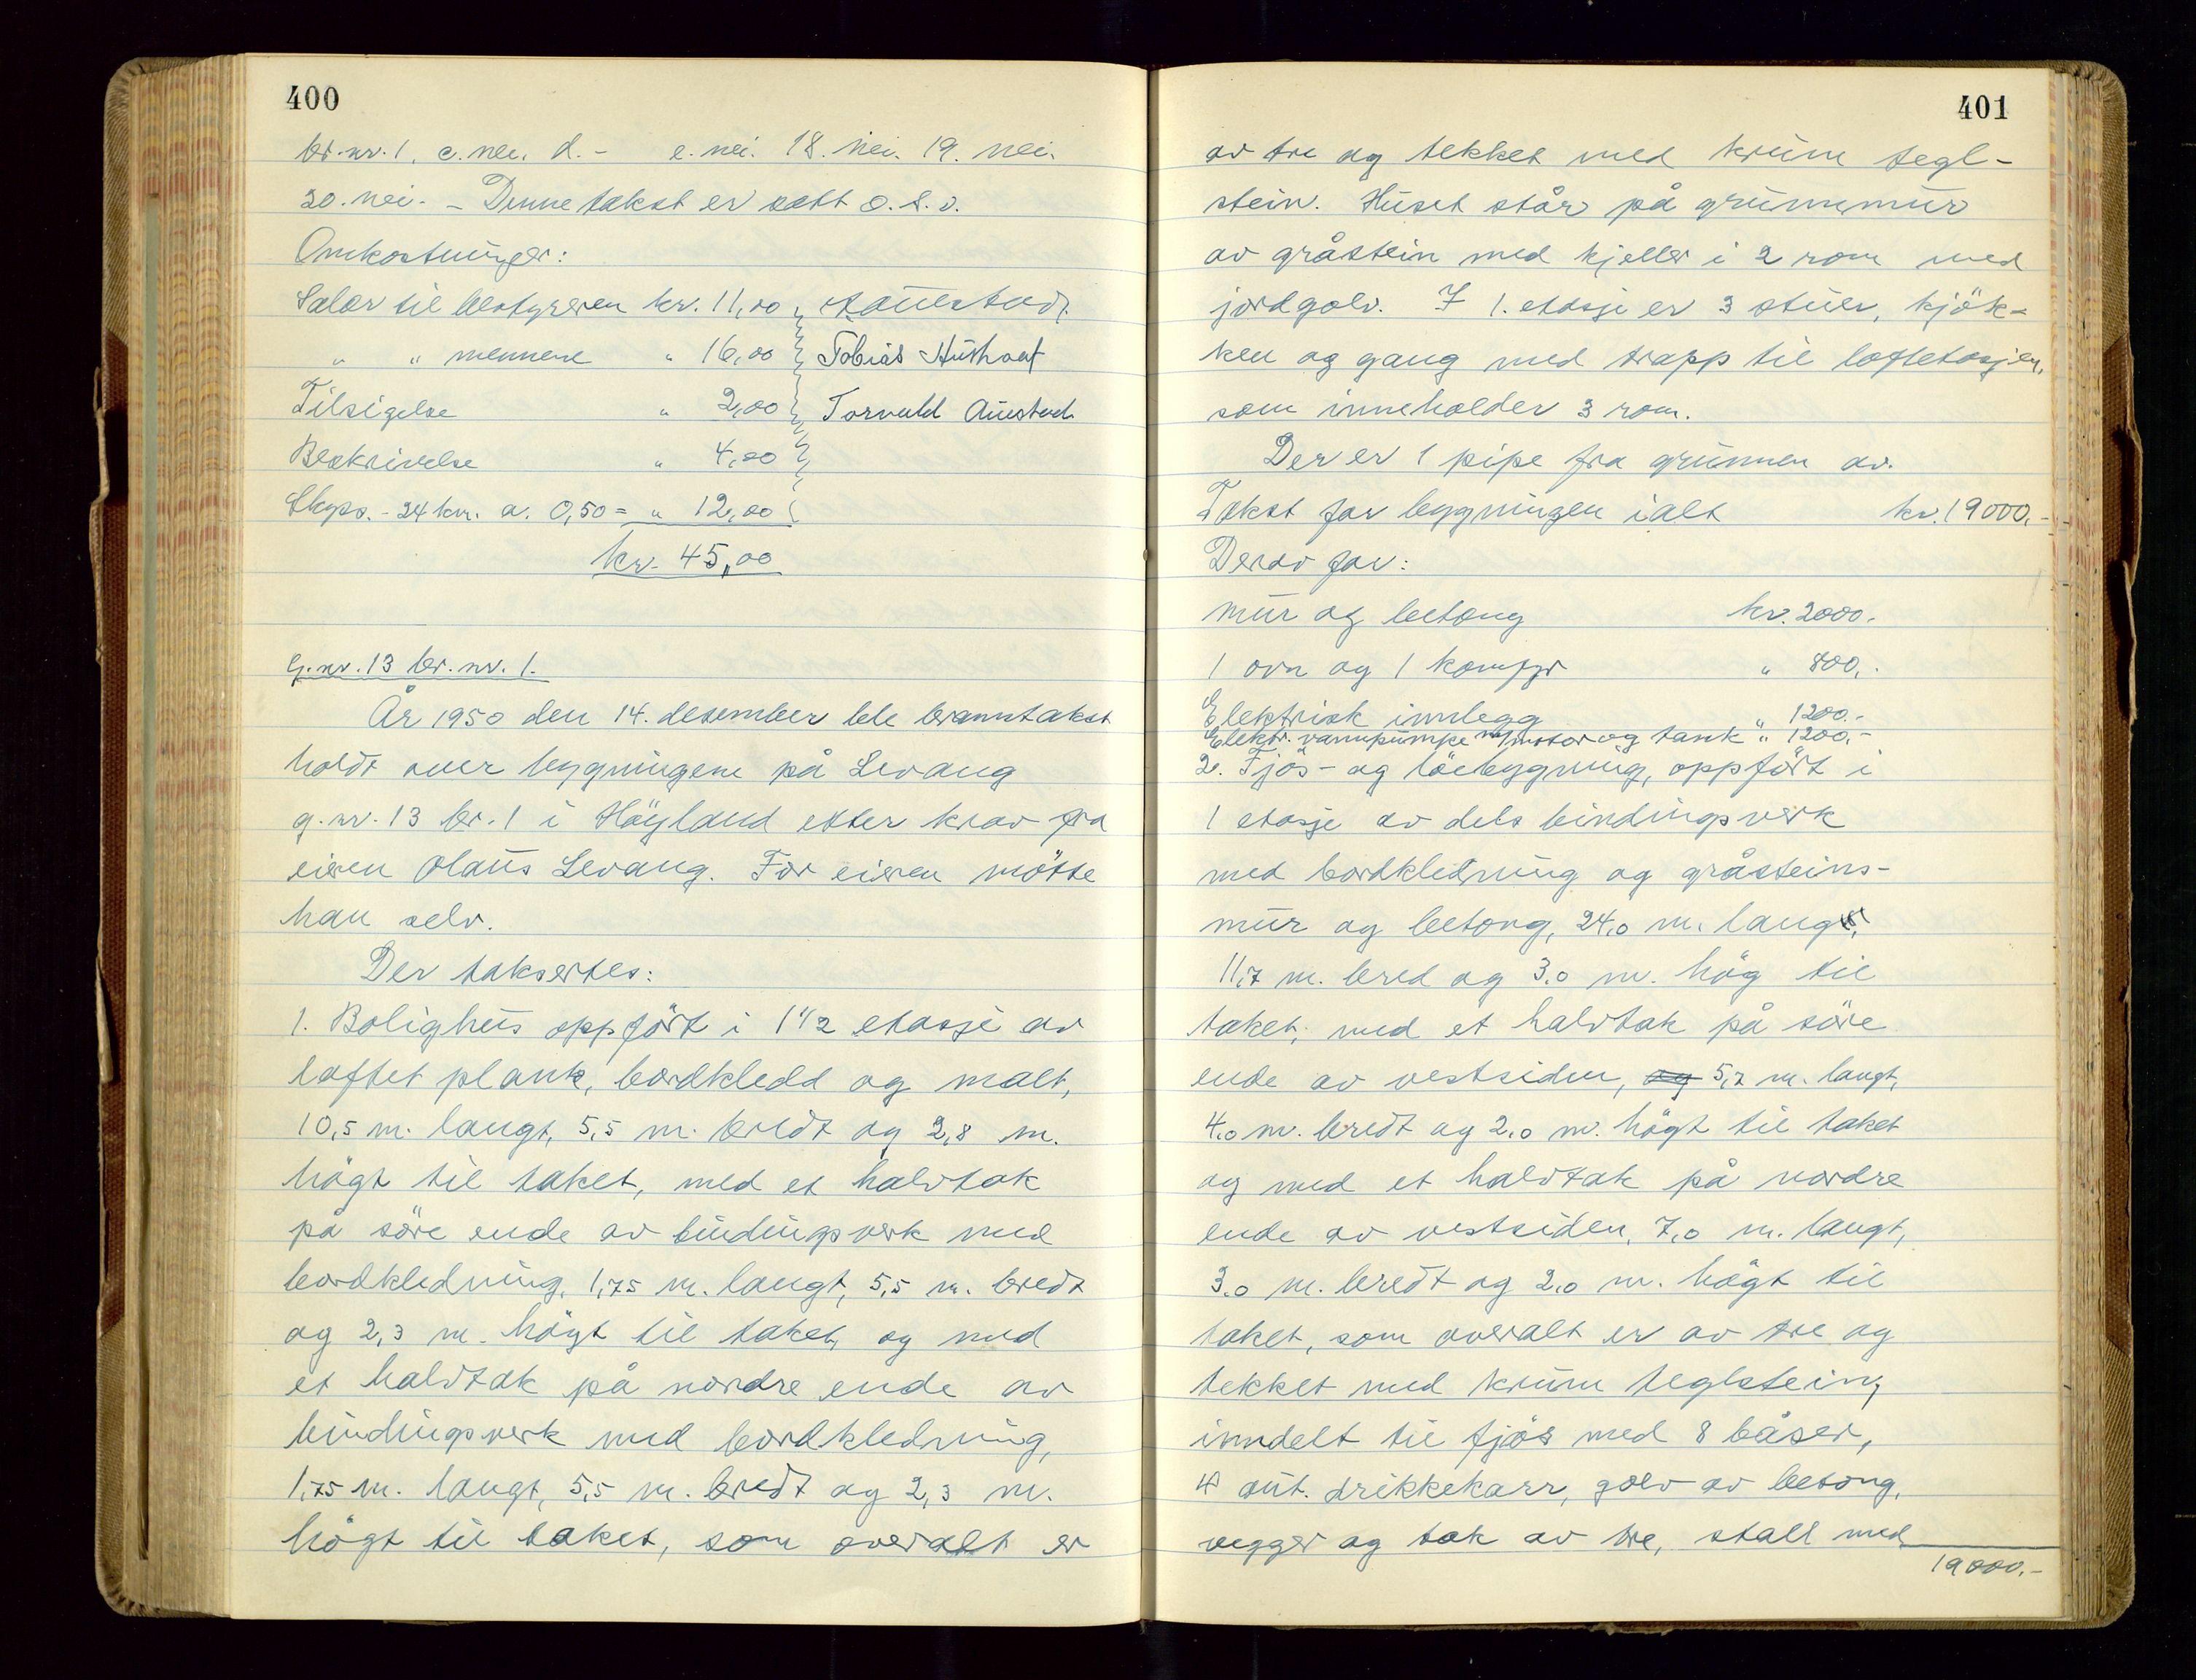 400
br.nr. 1, c. nei. d. - e. nei. 18. nei. 19. nei.
20. nei. - Denne takst er satt o.s.v.
Omkostninger:
Salær til bestyreren kr. 11,00
" " mennene " 16,00 Tobias
Tilsigelse " 2,00 Torvald Austad
Beskrivelse " 4,00
Skyss. - 24 km. a. 0,50 = " 12,00
kr. 45,00
G.nr. 13 br.nr. 1.
År 1950 den 14. desember ble branntakst
holdt over bygningene på Levang
g.nr. 13 br. 1 i Höyland etter krav fra
eieren Olaus Levang. For eieren mötte
han selv.
Der taksertes:
1. Bolighus oppfört i 1 1/2 etasje av
laftet plank, bordkledd og malt,
10,5 m. langt, 5,5 m. bredt og 2,8 m.
högt til taket, med et halvtak
på söre ende av bindingsverk med
bordkledning, 1,75 m. langt, 5,5 m. bredt
og 2,3 m. högt til taket, og med
et halvtak på nordre ende av
bindingsverk med bordkledning,
1,75 m. langt, 5,5 m. bredt og 2,3 m.
högt til taket, som overalt er
401
av tre og tekket med krum tegl-
stein. Huset står på grunnmur
av gråstein med kjeller i 2 rom med
jordgolv. I 1. etasje er 3 stuer, kjök-
ken og gang med trapp til loftetasjen,
som inneholder 3 rom.
Der er 1 pipe fra grunnen av.
Takst for bygningen ialt kr. 19000.-
Derav for:
mur og betong kr. 2000.
1 ovn og 1 komfyr " 800.
Elektrisk innlegg 1200.-
Elektr. vannpumpe m/motor og tank " 1200.-
2. Fjös- og löebygning, oppfört i
1 etasje av dels bindingsverk
med bordkledning og gråsteins-
mur og betong, 24,0 m. lang,
11,7 m. bred og 3,0 m. hög til
taket, med et halvtak på söre
ende av vestsiden, og 5,2 m. langt,
4,0 m. bredt og 2,0 m. högt til taket
og med et halvtak på nordre
ende av vestsiden, 7,0 m. langt,
3,0 m. bredt og 2,0 m. högt til
taket, som overalt er av tre og
tekket med krum teglstein,
inndelt til fjös med 8 båser,
4 aut. drikkekarr, golv av betong,
vegger og tak av tre, stall med
19000.-